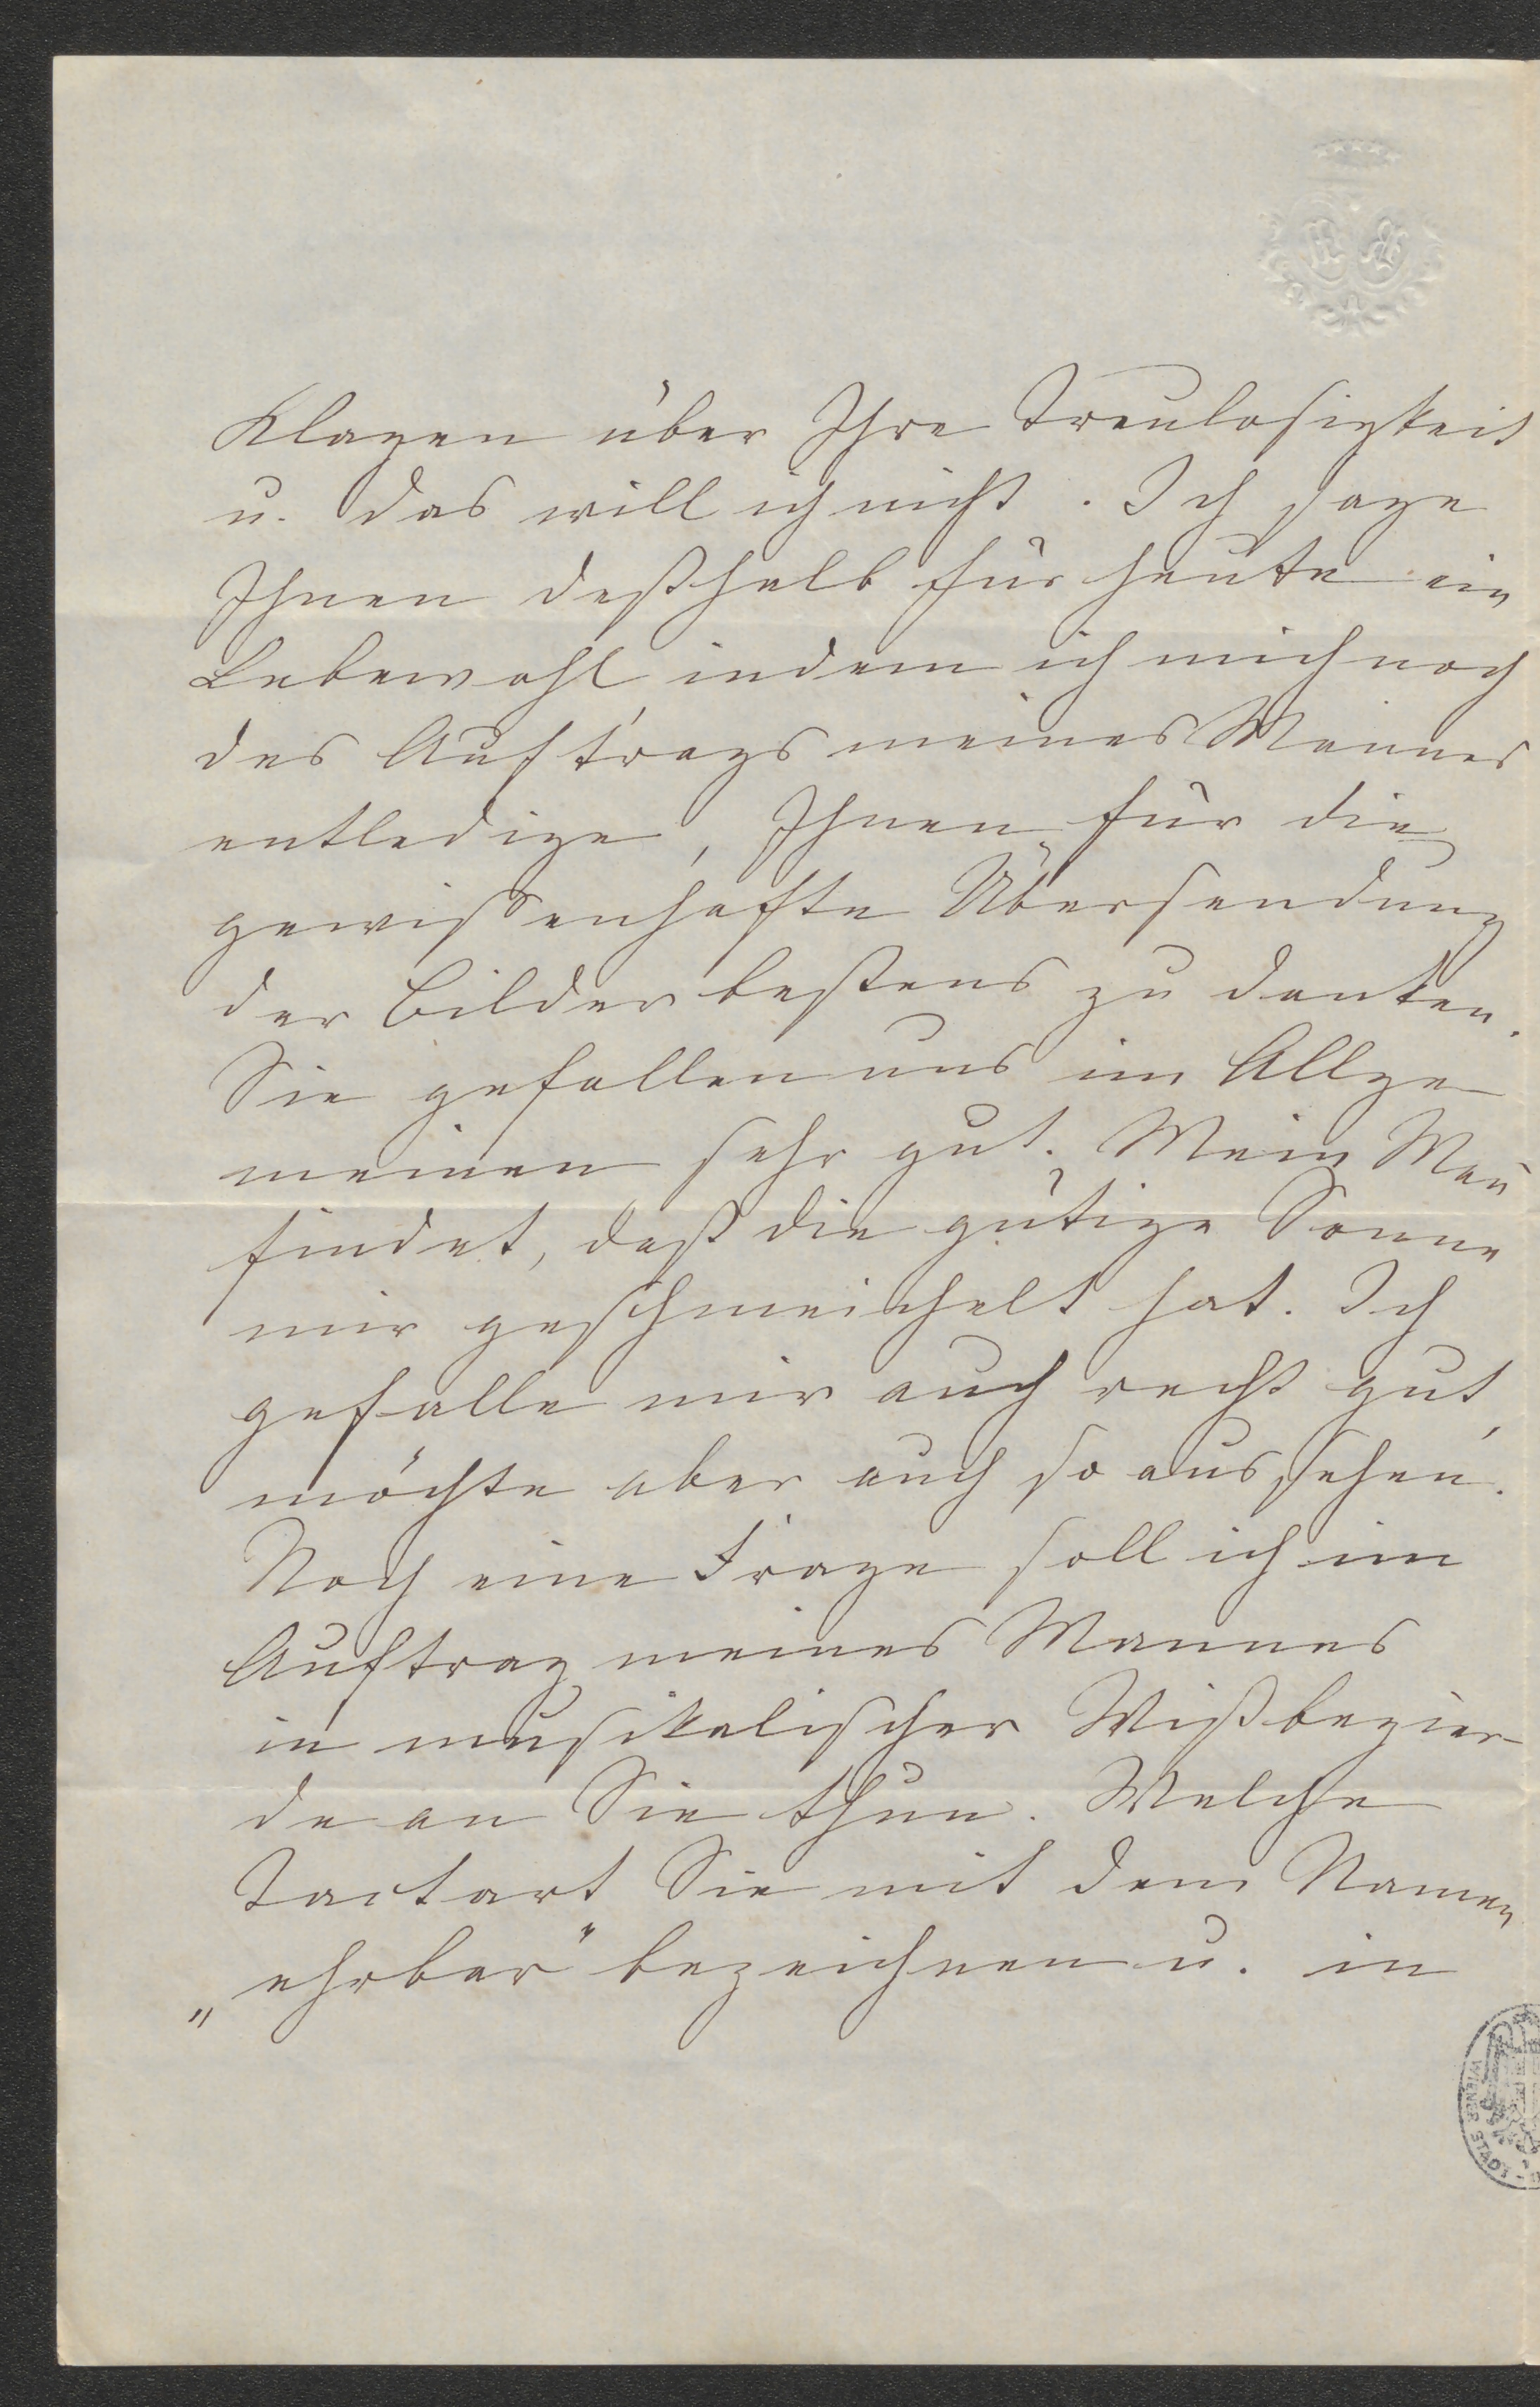 Klagen über Ihre Treulosigkeit
u. das will ich nicht. Ich sage
Ihnen deßhalb für heute ein
Lebewohl, indem ich mich noch
des Auftrags meines Mannes
entledige, Ihnen für die
gewissenhafte Übersendung
der Bilder bestens zu danken.
Sie gefallen uns im Allge
meinen sehr gut. Mein Man̄
findet, daß die gütige Sonne
mir geschmeichelt hat. Ich
gefalle mir auch recht gut,
möchte aber auch so aussehen.
Noch eine Frage soll ich im
Auftrag meines Mannes
in musikalischer Wißbegier-
de an Sie thun. Welche
Tactart Sie mit dem Namen
„ehrbar" bezeichnen u. in
WIENER STADT-